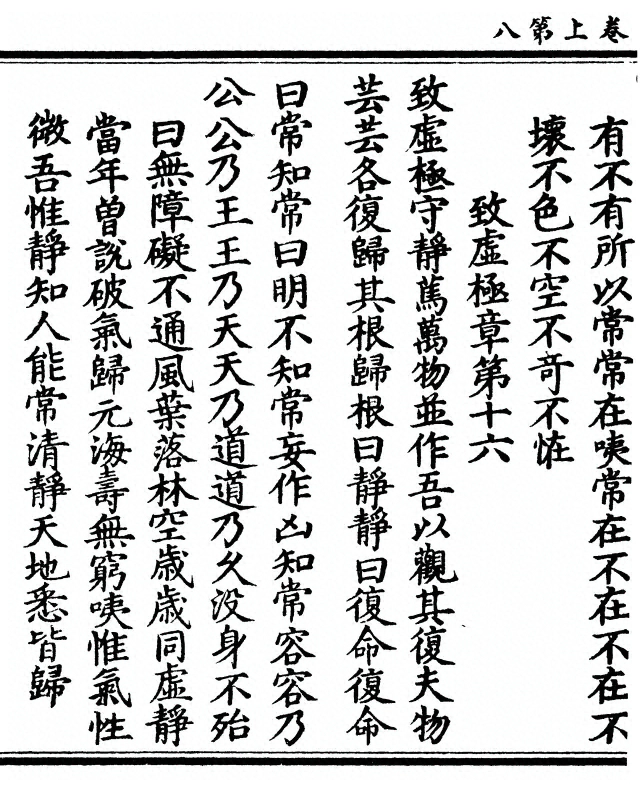 卷上第八
有不有所以常常在咦常在不在不在不
壞不色不空不奇不恠
致虛極章第十六
致虛極守靜篤萬物並作吾以觀其復夫物
芸芸各復歸其根歸根曰靜靜曰復命復命
曰常知常曰明不知常妄作凶知常容容乃
公公乃王王乃天天乃道道乃久没身不殆
曰無障礙不通風葉落林空歲歲同虛靜
當年曾說破氣歸元海壽無窮咦惟氣性
微吾惟靜知人能常清靜天地悉皆歸